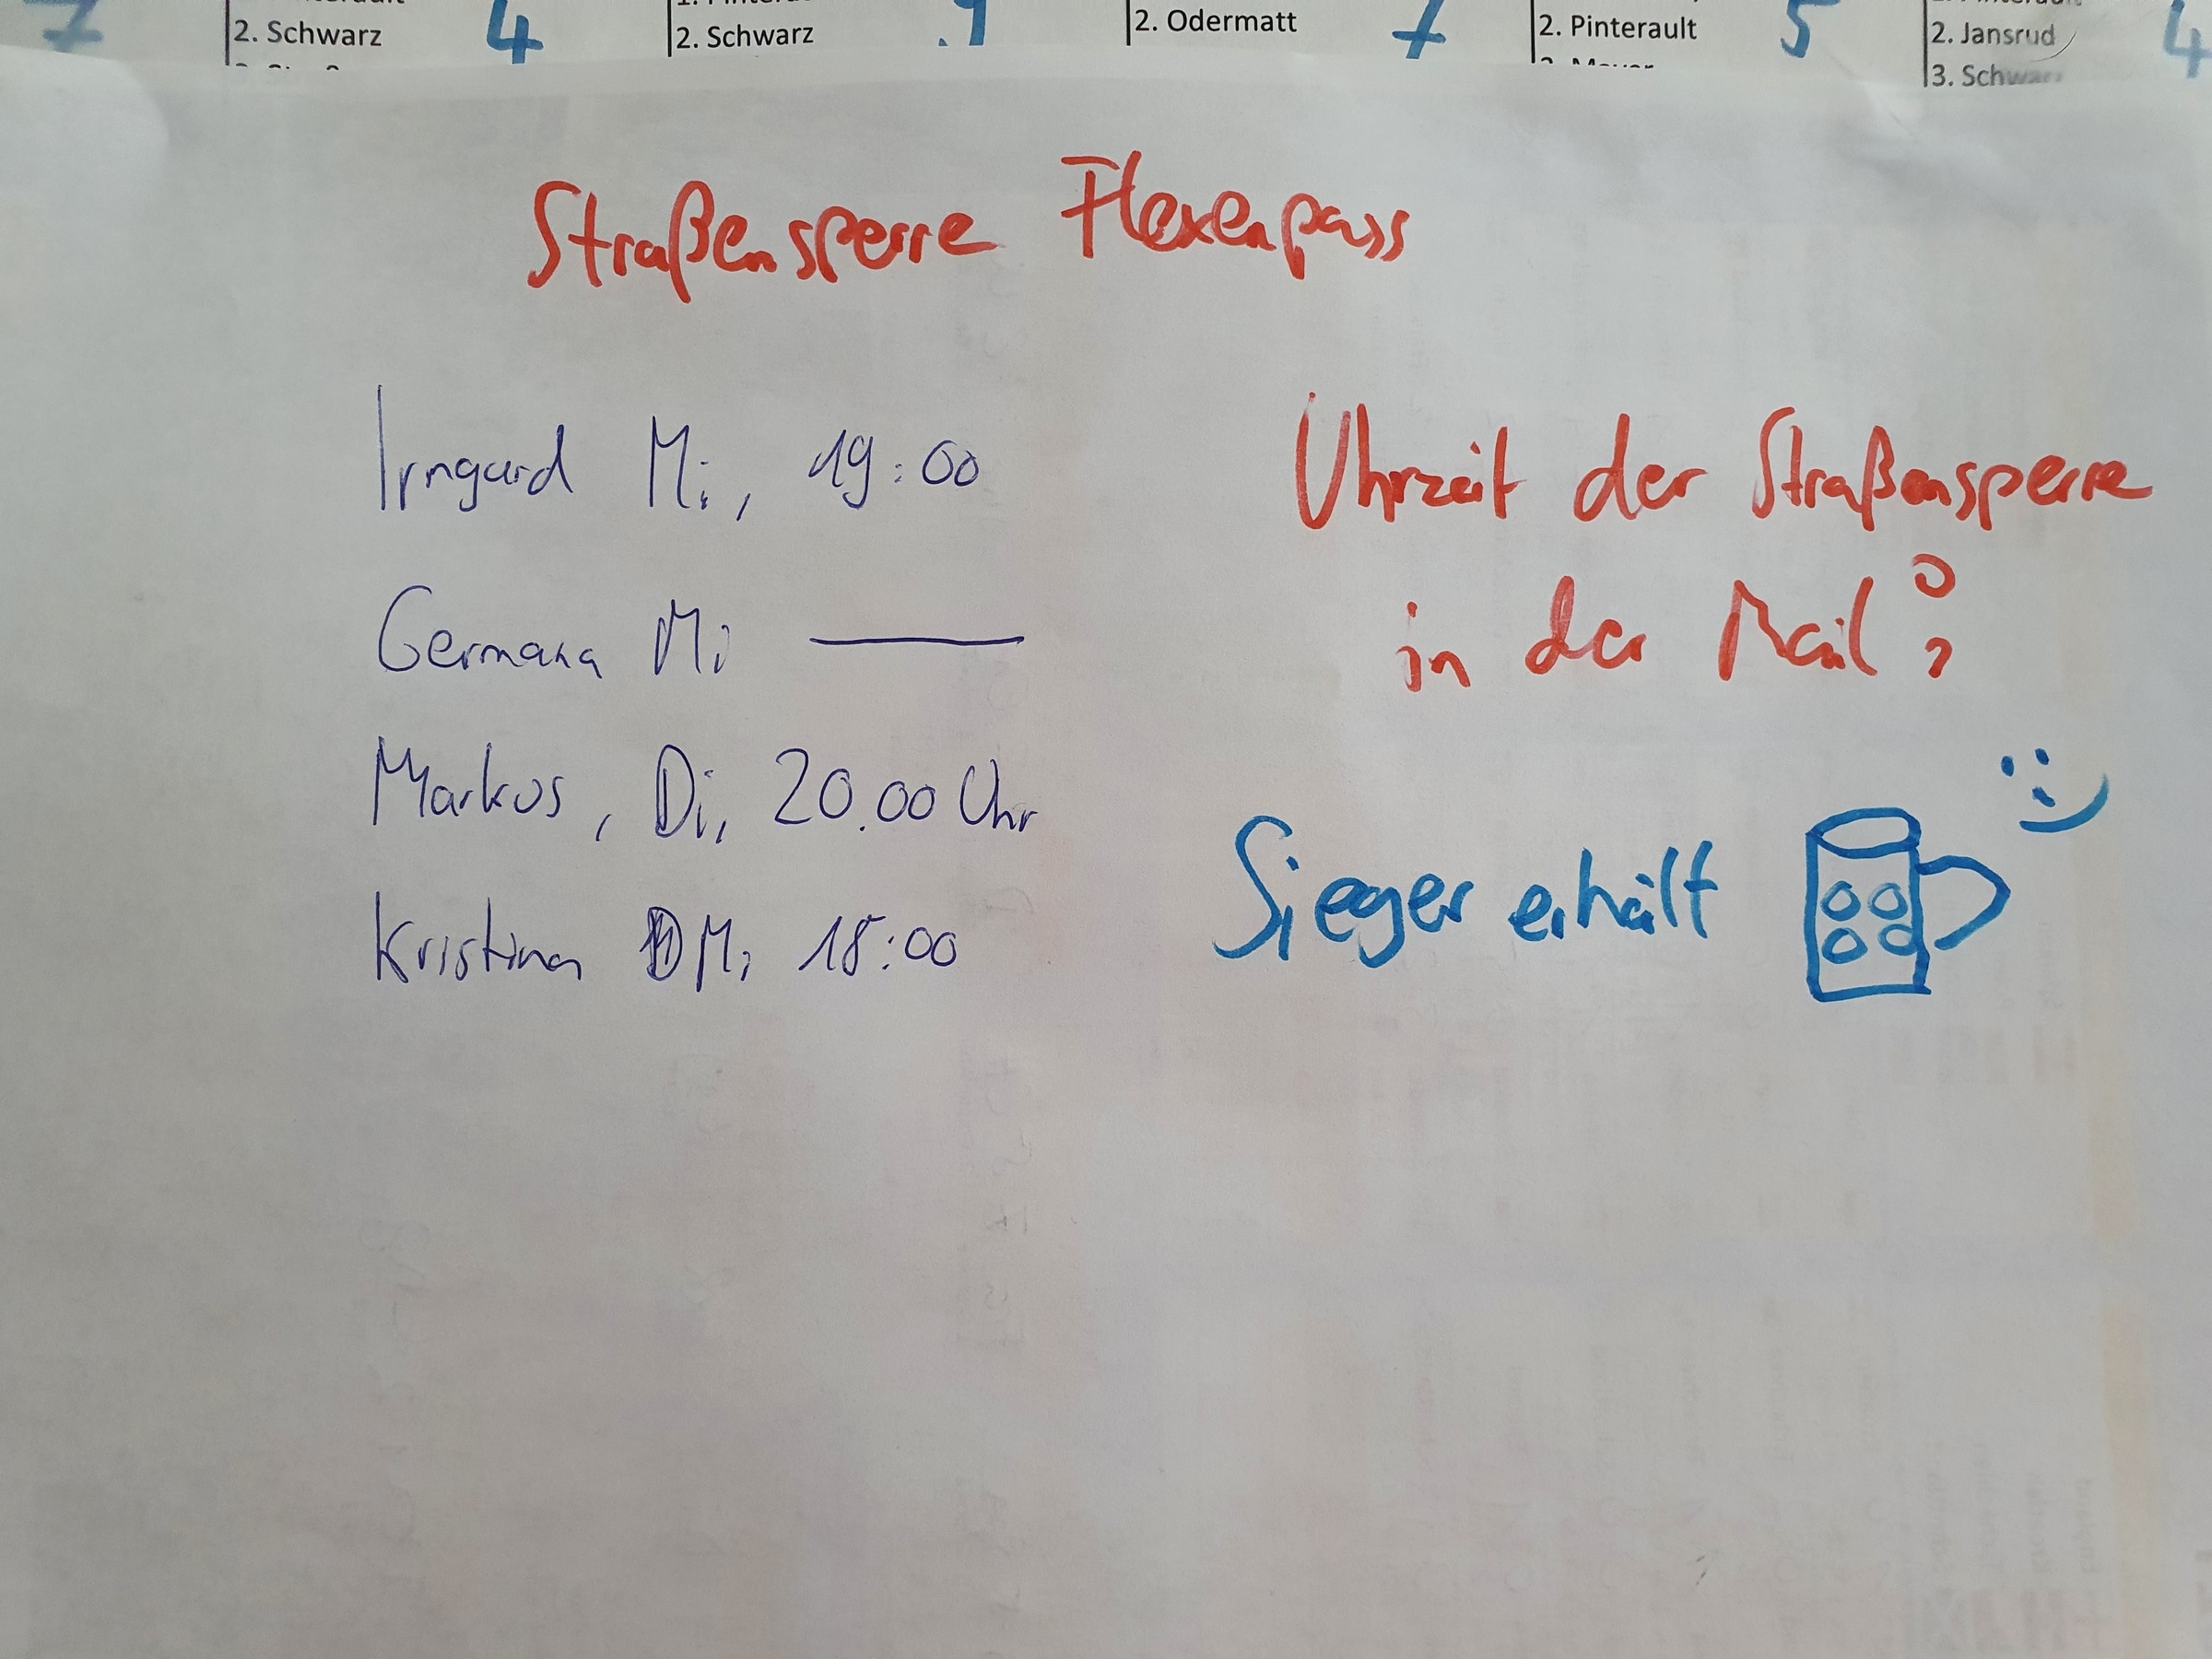 2. Schwarz 4
2. Schwarz
2. Odermatt 7
2. Pinterault 5
2. Jansrud 4
3. Schwarz
Straßensperre Flexenpass
Irmgard Mi, 19:00
Germana Mi
Markus, Di, 20.00 Uhr
Kristina Mi 18:00
Uhrzeit der Straßensperre
in der Mail?
Sieger erhält